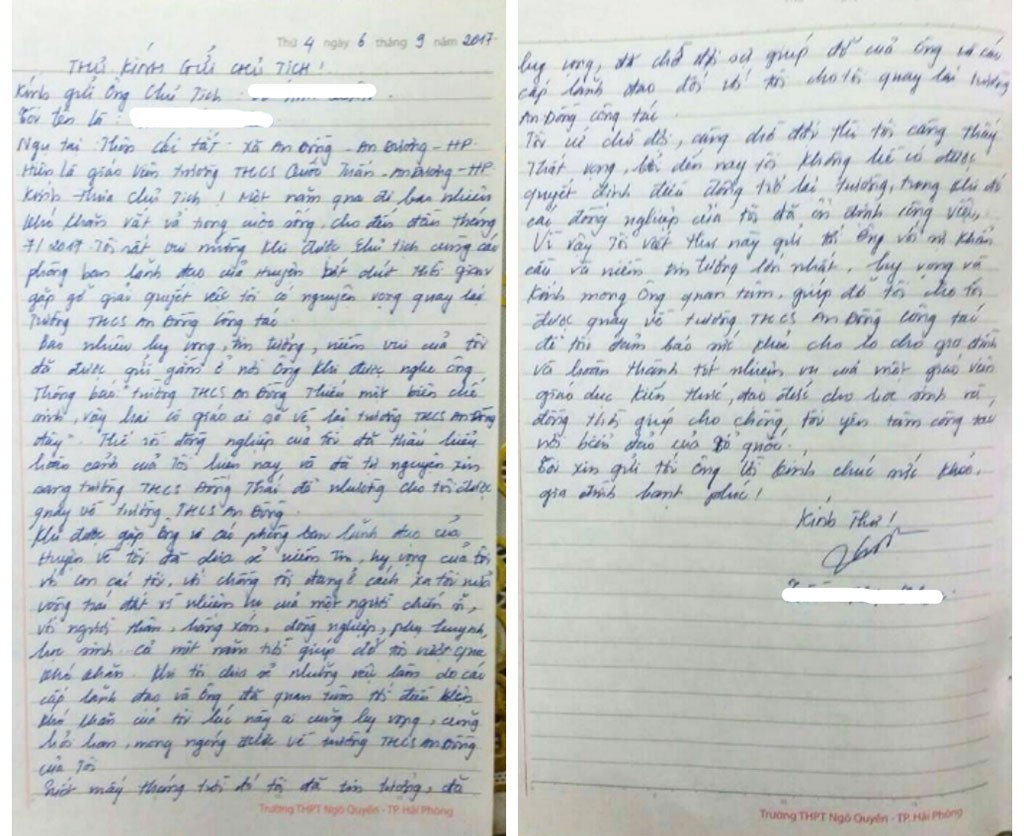 Thứ 4 ngày 6 tháng 9 năm 2017
THƯ KÍNH GỬI CHỦ TỊCH!
Kính gửi Ông Chủ Tịch:
Tôi tên là:
Ngụ tại: Thôn Cái Tắt - xã An Đồng - An Dương - HP
Hiện là giáo viên trường THCS Quốc Tuấn - An Dương - HP.
Kính thưa Chủ Tịch! Một năm qua đi bao nhiêu
khó khăn vất vả trong cuộc sống, cho đến đầu tháng
7/2017 Tôi rất vui mừng khi được Chủ tịch cùng các
phòng ban lãnh đạo của Huyện bớt chút thời gian
gặp gỡ giải quyết việc tôi có nguyện vọng quay lại
trường THCS An Đồng công tác.
Bao nhiêu hy vọng, tin tưởng, niềm vui của tôi
đã được gửi gắm ở nơi Ông khi được nghe ông
thông báo trường THCS An Đồng thiếu một biên chế
sinh, vậy hai cô giáo ai sẽ về lại trường THCS An Đồng
đây". Thế rồi đồng nghiệp của tôi đã thấu hiểu
hoàn cảnh của tôi lúc này, và đã tự nguyện xin
sang trường THCS Hồng Thái để nhường cho tôi được
quay về trường THCS An Đồng.
Khi được gặp Ông và các phòng ban lãnh đạo của
Huyện về tôi đã chia sẻ niềm tin, hy vọng của tôi
với con cái tôi, với chồng tôi đang ở cách xa tôi nửa
vòng trái đất vì nhiệm vụ của một người chiến sĩ,
với người thân, hàng xóm, đồng nghiệp, phụ huynh,
học sinh cả một năm trời giúp đỡ tôi vượt qua
khó khăn. Khi tôi chia sẻ những việc làm do các
cấp lãnh đạo và Ông đã quan tâm tới điều kiện
khó khăn của tôi lúc này ai cũng hy vọng, cũng
hỏi han, mong ngóng được về trường THCS An Đồng
của Tôi.
Suốt mấy tháng trời đó tôi đã tin tưởng, đã
Trường THPT Ngô Quyền - TP. Hải Phòng
hy vọng, đã chờ đợi sự giúp đỡ của Ông và các
cấp lãnh đạo đối với tôi cho tôi quay lại trường
An Đồng công tác.
Tôi cứ chờ đợi, càng chờ đợi thì tôi càng thấy
thất vọng, bởi đến nay tôi không hề có được
quyết định điều động trở lại trường, trong khi đó
các đồng nghiệp của tôi đã ổn định công việc.
Vì vậy Tôi viết thư này gửi tới Ông với sự khẩn
cầu và niềm tin tưởng lớn nhất, hy vọng và
kính mong Ông quan tâm, giúp đỡ tôi cho tôi
được quay về trường THCS An Đồng công tác
để tôi đảm bảo sức khỏe cho lo cho gia đình
và hoàn thành tốt nhiệm vụ của một giáo viên
giáo dục kiến thức, đạo đức cho học sinh và,
đồng thời giúp cho chồng tôi yên tâm công tác
nơi biển đảo của tổ quốc.
Tôi xin gửi tới Ông lời kính chúc sức khỏe,
gia đình hạnh phúc!
Kính Thư!
Trường THPT Ngô Quyền - TP. Hải Phòng